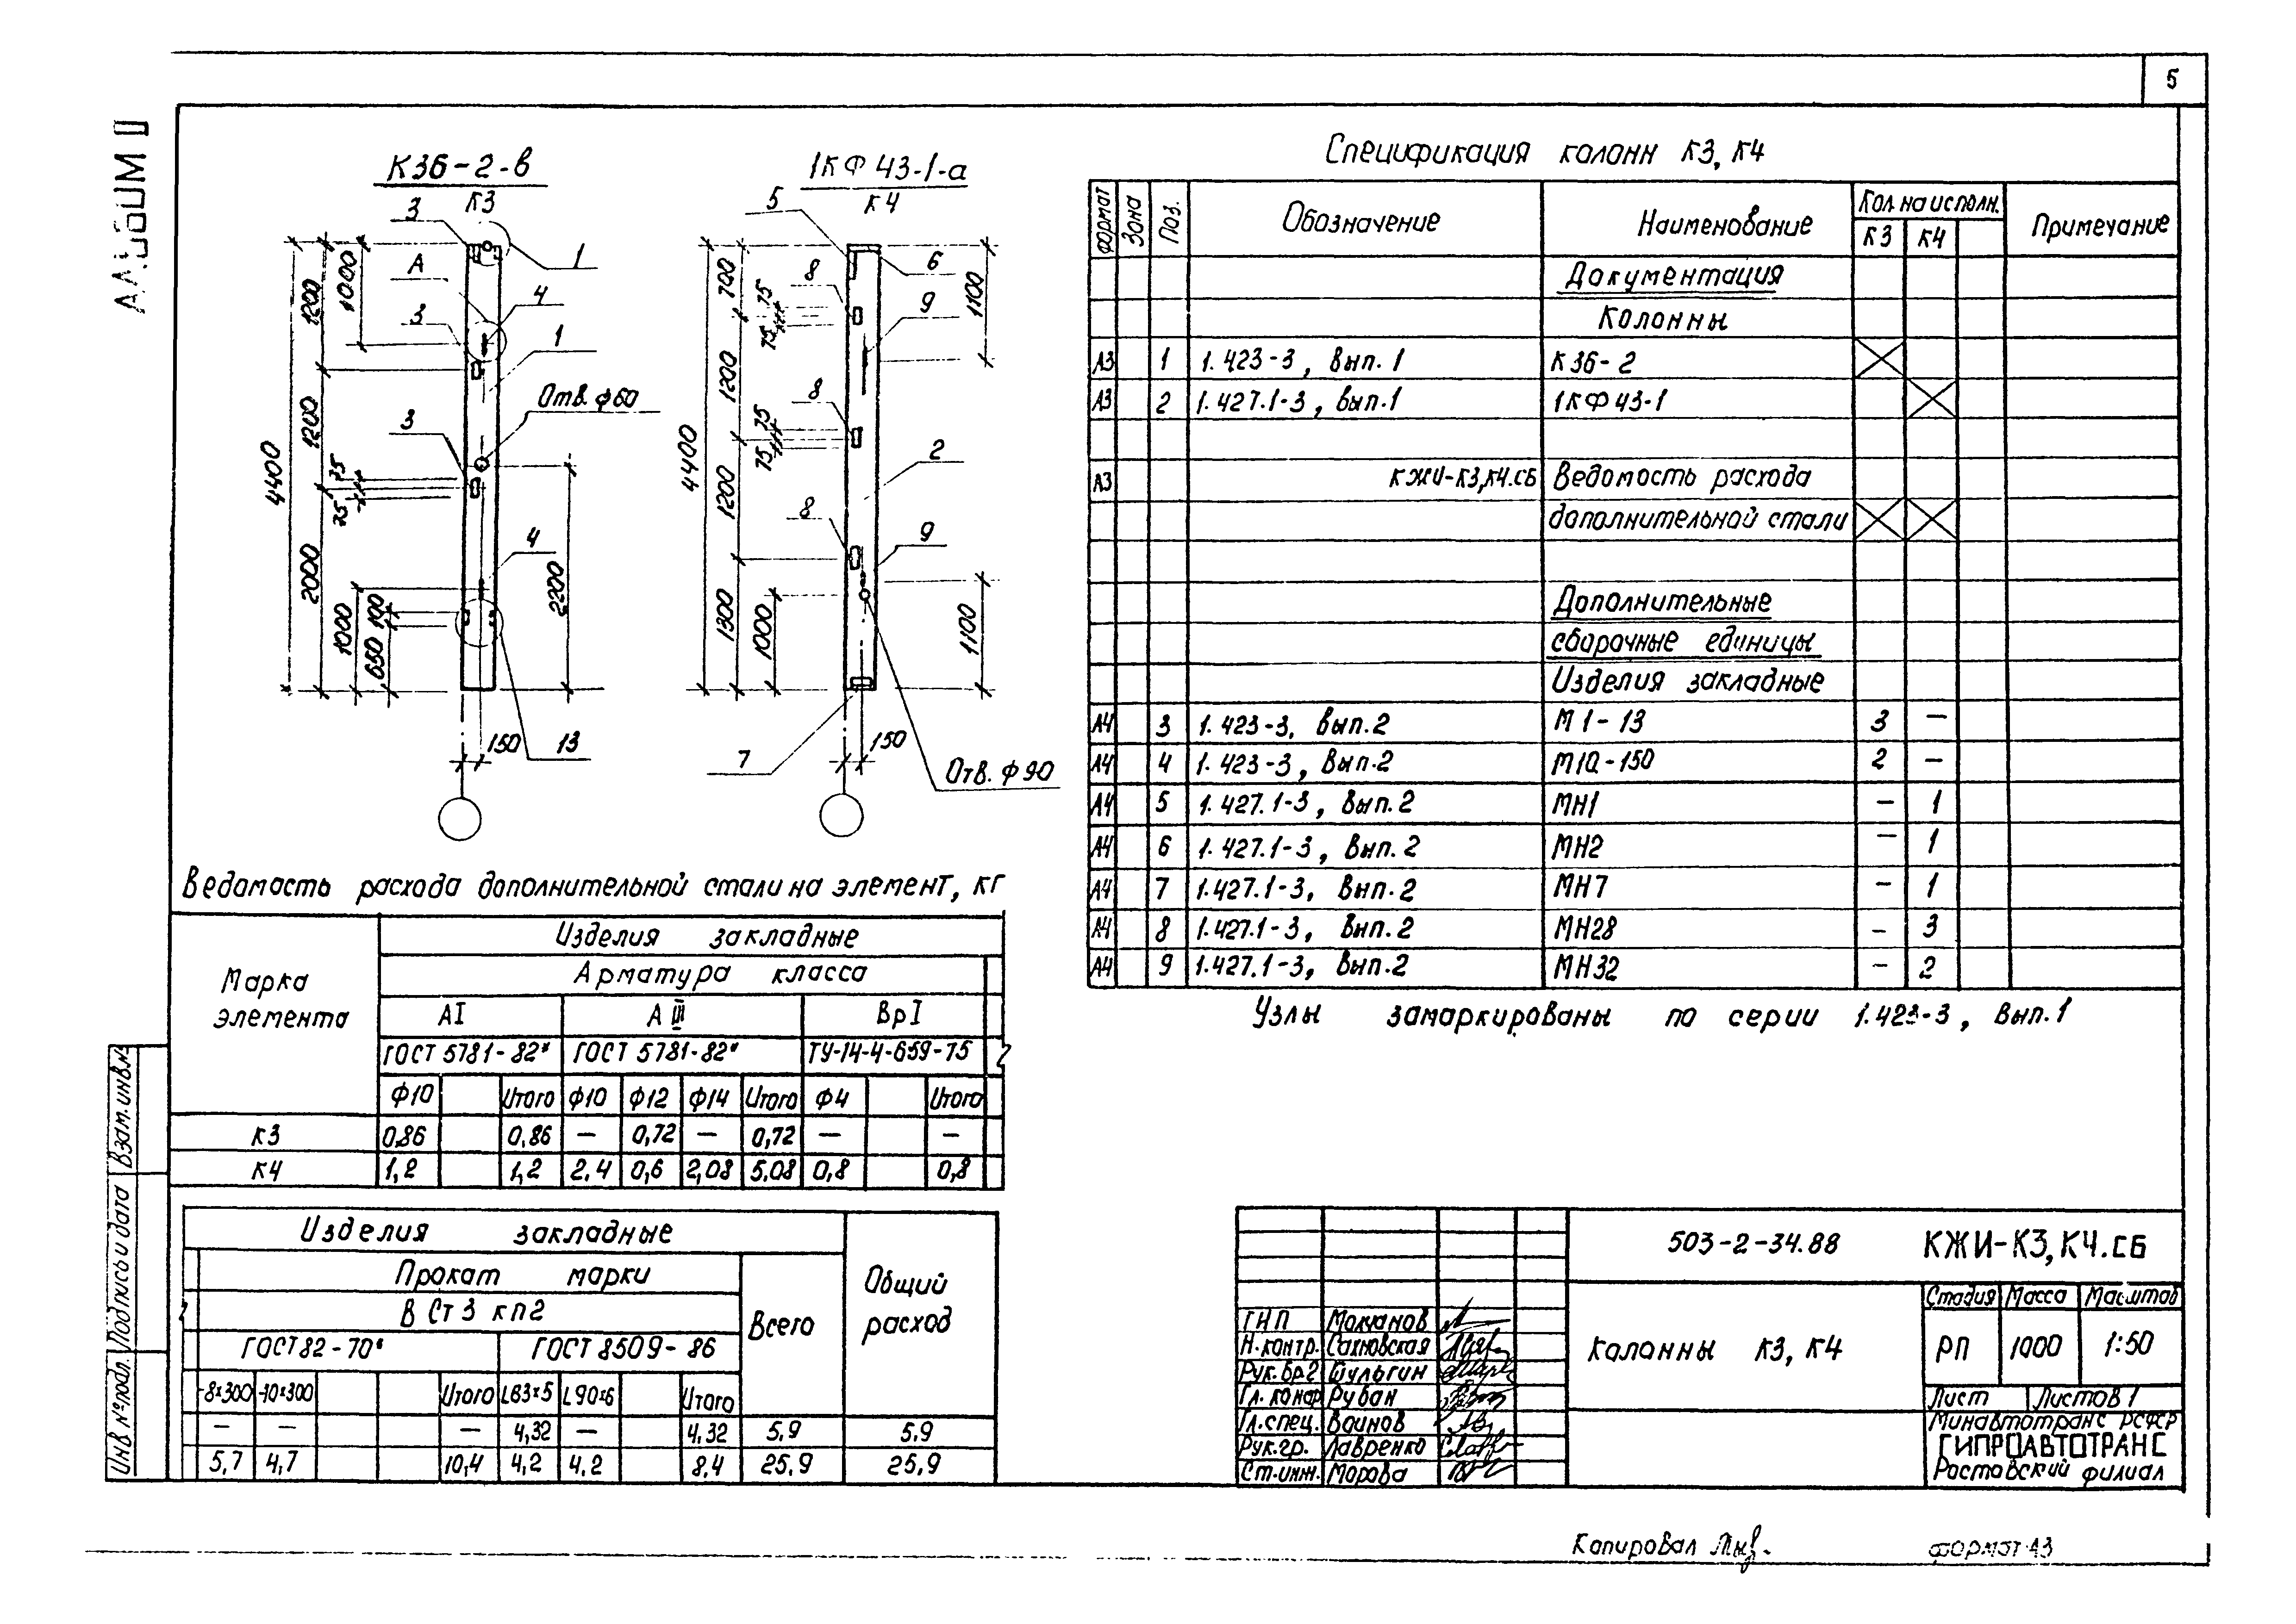 5
АЛЬБОМ II
К36-2-в
К3
3
1
А
4
3
1
Отв. ф60
3
4
13
1000
1200
1200
4400
2000
1000
650
100
2200
150
1КФ 43-1-а
К4
5
6
8
9
8
2
8
9
7
700
75
75
1200
75
75
1200
4400
1300
1000
1100
1100
150
Отв. ф90
Спецификация колонн К3, К4
Формат Зона Поз. Обозначение Наименование Кол. на исполн. Примечание
К3 К4
Документация
Колонны
А3 1 1.423-3, вып. 1 К36-2
А3 2 1.427.1-3, вып.1 1КФ43-1
А3 КЖИ-К3,К4.СБ Ведомость расхода
дополнительной стали
Дополнительные
сборочные единицы
Изделия закладные
А4 3 1.423-3, вып.2 М1-13 3 —
А4 4 1.423-3, вып.2 М10-150 2 —
А4 5 1.427.1-3, вып.2 МН1 — 1
А4 6 1.427.1-3, вып.2 МН2 — 1
А4 7 1.427.1-3, вып.2 МН7 — 1
А4 8 1.427.1-3, вып.2 МН28 — 3
А4 9 1.427.1-3, вып.2 МН32 — 2
Узлы замаркированы по серии 1.423-3, вып.1
Ведомость расхода дополнительной стали на элемент, кг
Марка элемента
Изделия закладные
Арматура класса
АI АIII ВрI
ГОСТ 5781-82* ГОСТ 5781-82* ТУ-14-4-659-75
Ф10 Итого Ф10 Ф12 Ф14 Итого Ф4 Итого
К3 0,86 0,86 — 0,72 — 0,72 — —
К4 1,2 1,2 2,4 0,6 2,08 5,08 0,8 0,8
Изделия закладные
Общий расход
Прокат марки
Всего
В Ст3 кп2
ГОСТ 82-70* ГОСТ 8509-86
-8х300 -10х300 Итого L63х5 L90х6 Итого
— — — 4,32 — 4,32 5,9 5,9
5,7 4,7 10,4 4,2 4,2 8,4 25,9 25,9
Взам. инв.№
Подпись и дата
Инв №подл.
503-2-34.88 КЖИ-К3,К4.СБ
Колонны К3, К4
Стадия Масса Масштаб
РП 1000 1:50
Лист Листов 1
ГИП Молчанов
Н.контр. Сахновская
Рук.бр.2 Шульгин
Гл. констр Рубан
Гл.спец. Воинов
Рук.гр. Лавренко
Ст.инж. Морова
Минавтотранс РСФСР
ГИПРОАВТОТРАНС
Ростовский филиал
Копировал
формат А3